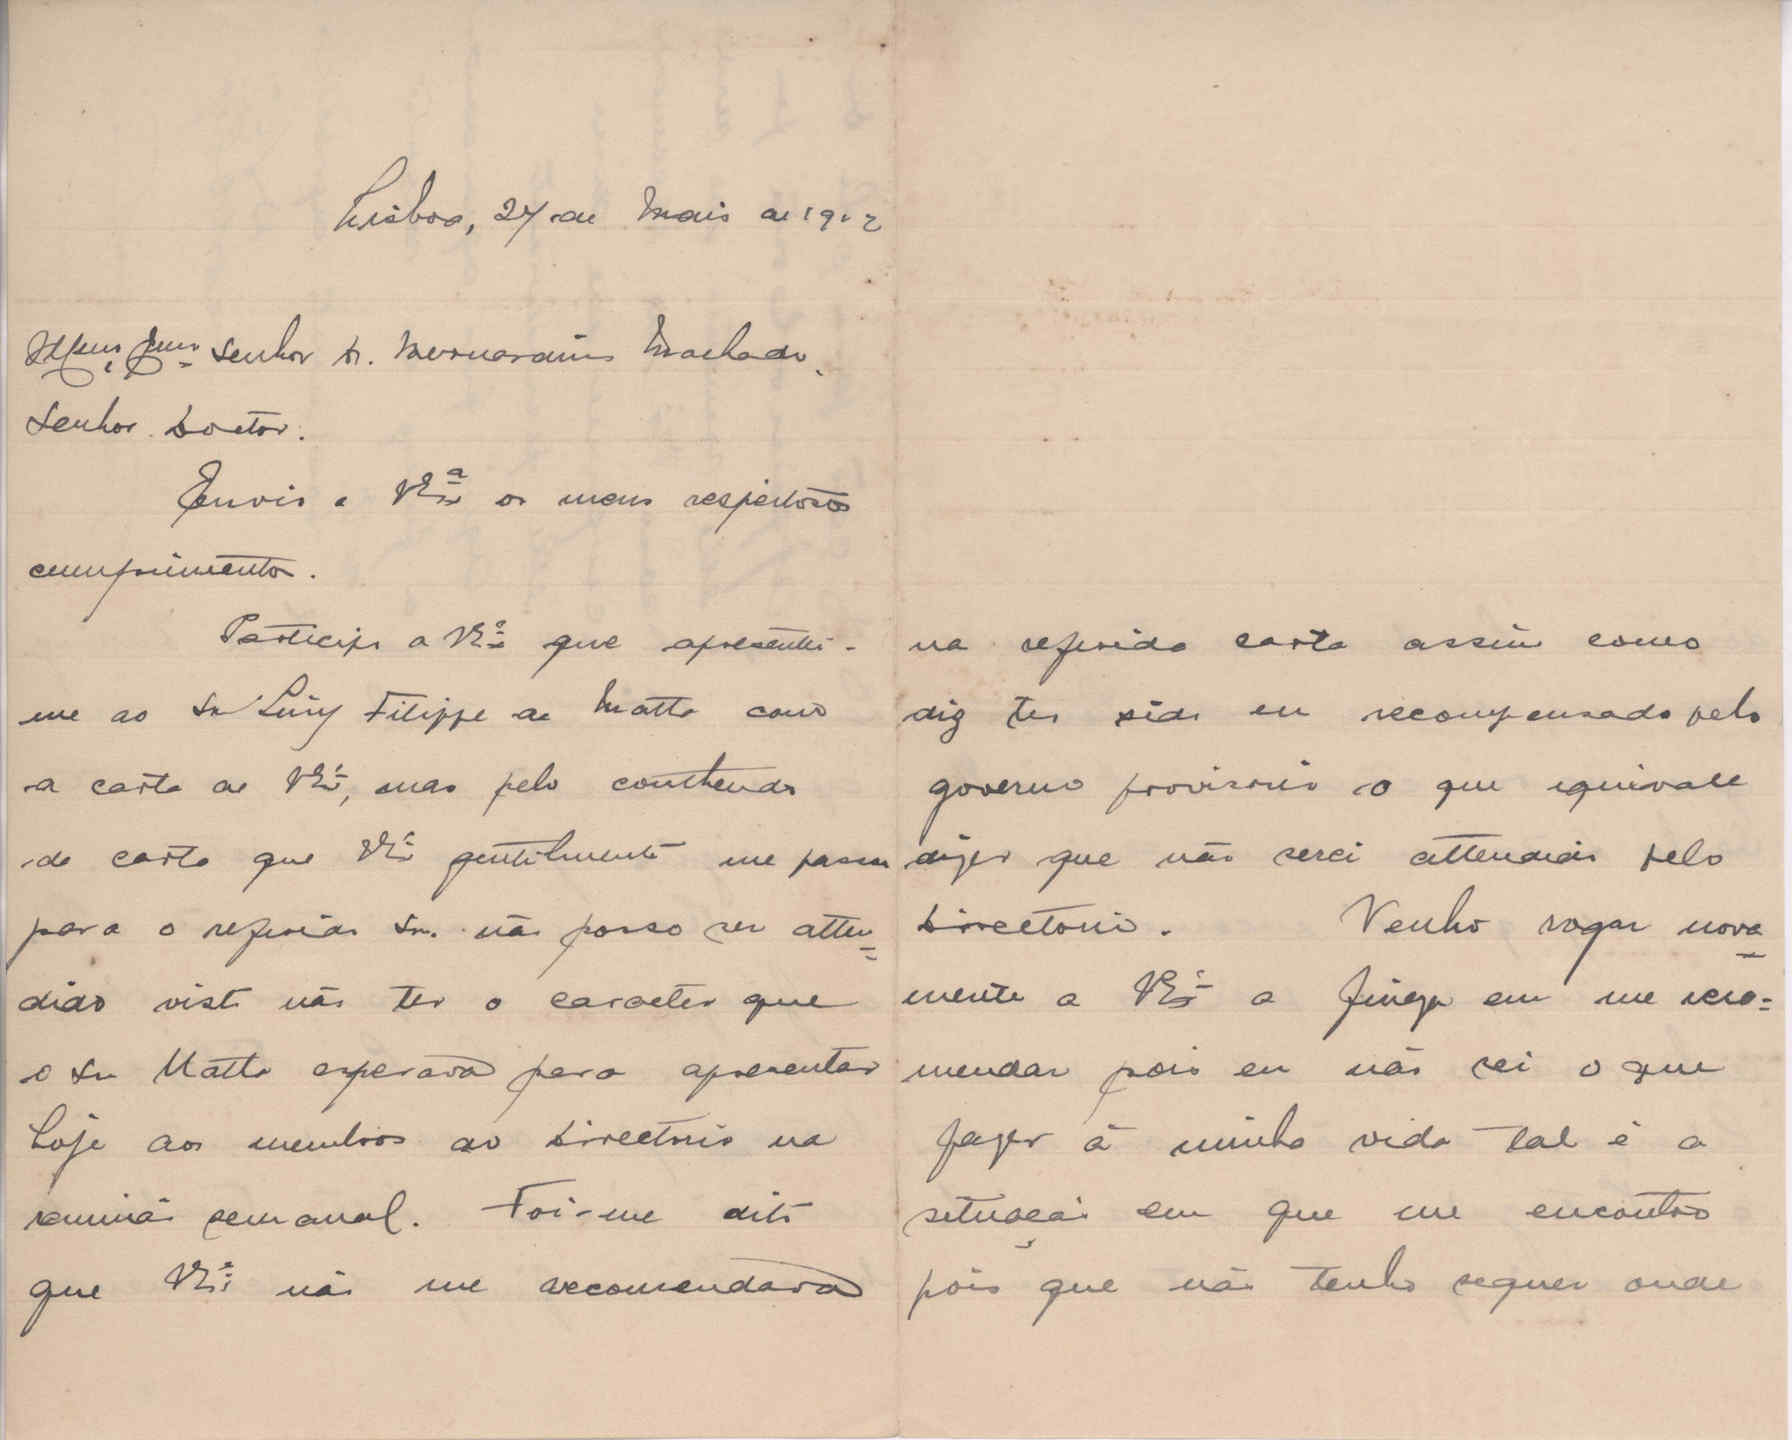 Lisboa, 27 de Maio de 1912
Illmo. e Exmo. Senhor Dr. Bernardino Machado.
Senhor Doctor.
Envio a V. Exª os meus respeitosos
cumprimentos.
Participo a V. Exª que apresentei-
me ao Sr Luiz Filippe da Matta com
a carta de V. Exª, mas pelo contheudo
da carta que V. Exª gentilmente me passou
para o referido Sr. não posso ser atten=
dido visto não ter o caracter que
o Sr Matta esperava para apresentar
hoje aos membros do Directorio na
reunião semanal. Foi-me dito
que V. Exª não me recomendava
na referida carta assim como
diz ter sido eu recompensado pelo
governo provisorio o que equivale
dizer que não serei attendido pelo
Directorio. Venho rogar nova=
mente a V. Exª a fineza em me reco=
mendar pois eu não sei o que
fazer á minha vida tal é a
situação em que me encontro
pois que não tenho sequer onde